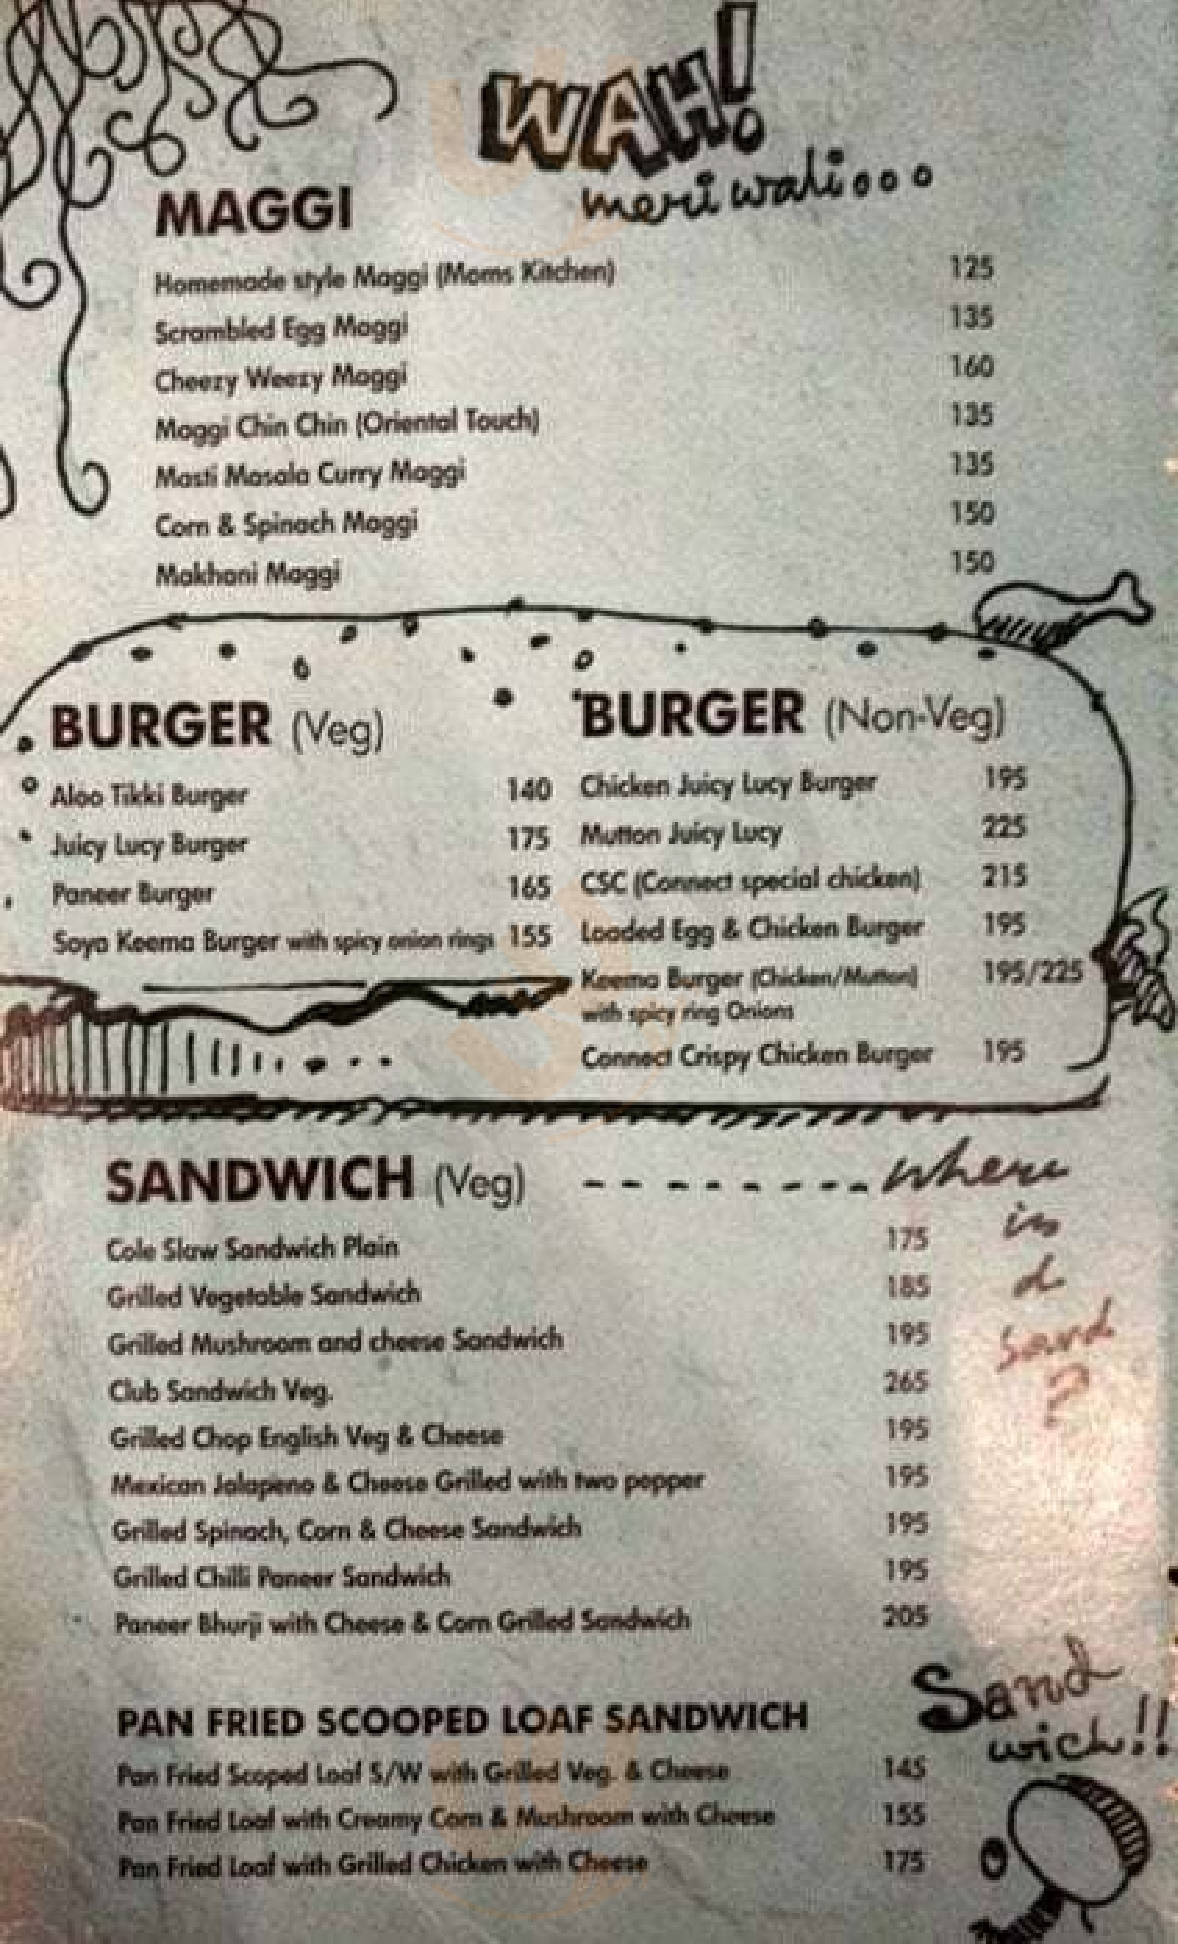 WAH!
meri wali...
MAGGI
Homemade style Maggi (Moms Kitchen) 125
Scrambled Egg Maggi 135
Cheezy Weezy Maggi 160
Maggi Chin Chin (Oriental Touch) 135
Masti Masala Curry Maggi 135
Corn & Spinach Maggi 150
Makhani Maggi 150
BURGER (Veg)
Aloo Tikki Burger 140
Juicy Lucy Burger 175
Paneer Burger 165
Soya Keema Burger with spicy onion rings 155
BURGER (Non-Veg)
Chicken Juicy Lucy Burger 195
Mutton Juicy Lucy 225
CSC (Connect special chicken) 215
Loaded Egg & Chicken Burger 195
Keema Burger (Chicken/Mutton) 195/225
with spicy ring Onions
Connect Crispy Chicken Burger 195
SANDWICH (Veg) - - - - - - - - where
is
d
sand
?
Cole Slaw Sandwich Plain 175
Grilled Vegetable Sandwich 185
Grilled Mushroom and cheese Sandwich 195
Club Sandwich Veg. 265
Grilled Chop English Veg & Cheese 195
Mexican Jalapeno & Cheese Grilled with two pepper 195
Grilled Spinach, Corn & Cheese Sandwich 195
Grilled Chilli Paneer Sandwich 195
Paneer Bhurji with Cheese & Corn Grilled Sandwich 205
Sand
wich!!
PAN FRIED SCOOPED LOAF SANDWICH
Pan Fried Scoped Loaf S/W with Grilled Veg. & Cheese 145
Pan Fried Loaf with Creamy Corn & Mushroom with Cheese 155
Pan Fried Loaf with Grilled Chicken with Cheese 175